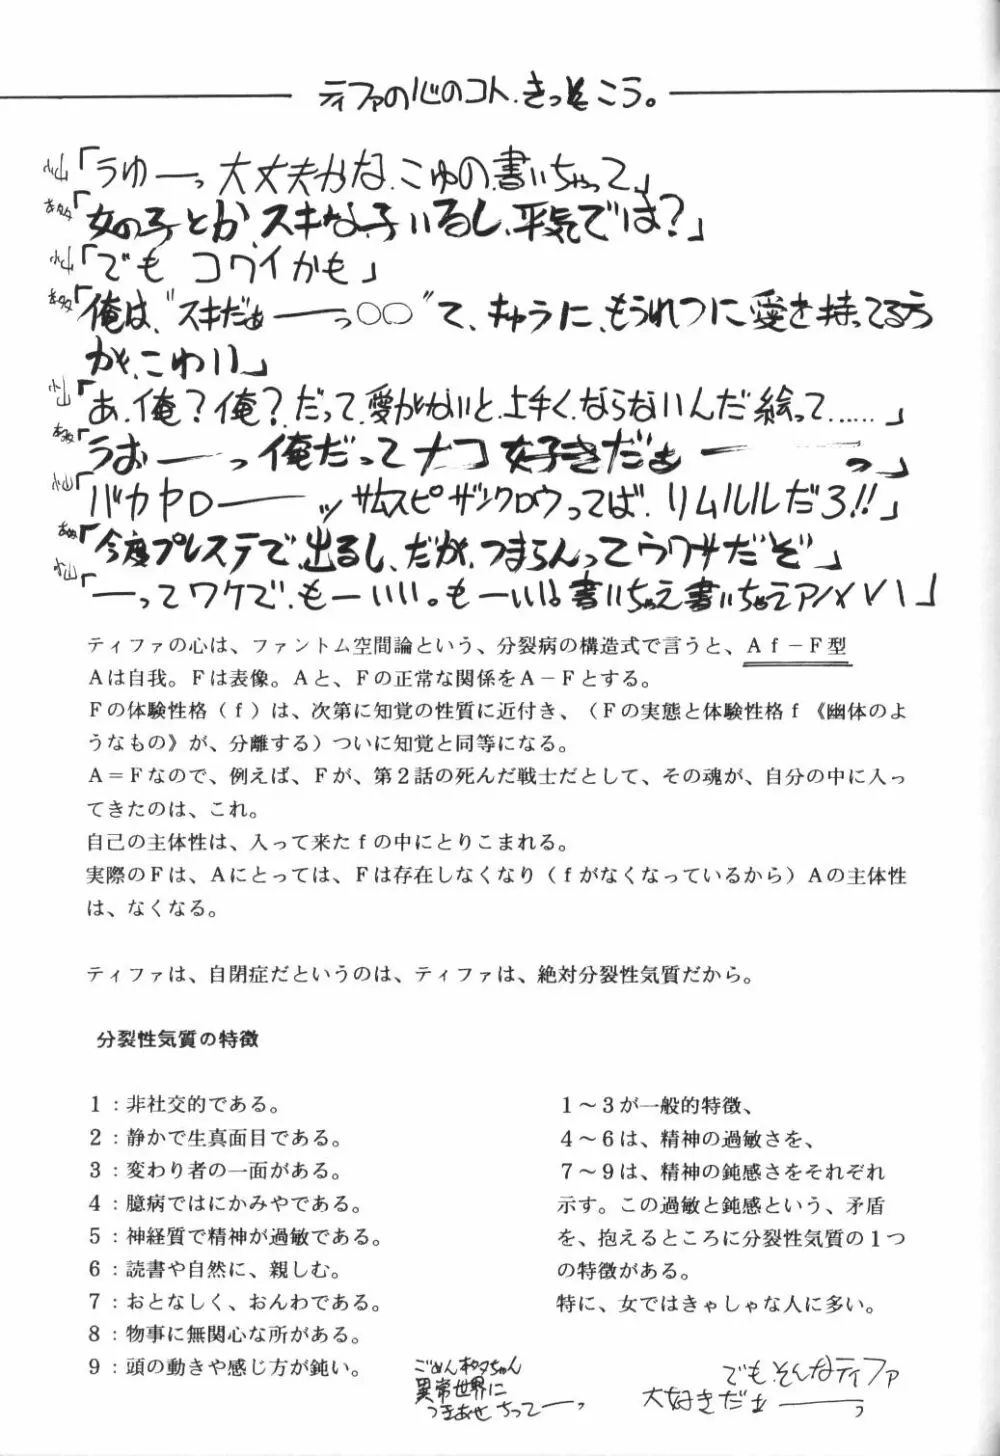 ティファの心のコト、きっとこう。
小山「うゆーっ大丈夫かな、こゆの書いちゃって」
「女の子とか、スキな子いるし、平気では?」
小山「でも コワイかも」
「俺は、“スキだぁーーっ○○”て、きゅうに、もうれつに愛を持ってる方
が、こわい」
小山「あ、俺?俺?だって、愛がないと、上手く、ならないんだ絵って……」
「うおーーっ俺だってナコ好きだぁーーーっ」
小山「バカヤローーッサムスピザンクロウってば、リムルルだろ!!」
「今度プレステで、出るし、だが、つまらんってウワサだぞ」
小山「ーってワケで、もーいい。もーいい。書いちゃえ書いちゃえアハハハ」
ティファの心は、ファントム空間論という、分裂病の構造式で言うと、Aｆ－F型
Aは自我。Fは表像。Aと、Fの正常な関係をA－Fとする。
Fの体験性格（ｆ）は、次第に知覚の性質に近付き、（Fの実態と体験性格ｆ《幽体のよ
うなもの》が、分離する）ついに知覚と同等になる。
A＝Fなので、例えば、Fが、第２話の死んだ戦士だとして、その魂が、自分の中に入っ
てきたのは、これ。
自己の主体性は、入って来たｆの中にとりこまれる。
実際のFは、Aにとっては、Fは存在しなくなり（ｆがなくなっているから）Aの主体性
は、なくなる。
ティファは、自閉症だというのは、ティファは、絶対分裂性気質だから。
分裂性気質の特徴
１：非社交的である。
２：静かで生真面目である。
３：変わり者の一面がある。
４：臆病ではにかみやである。
５：神経質で精神が過敏である。
６：読書や自然に、親しむ。
７：おとなしく、おんわである。
８：物事に無関心な所がある。
９：頭の動きや感じ方が鈍い。
１～３が一般的特徴、
４～６は、精神の過敏さを、
７～９は、精神の鈍感さをそれぞれ
示す。この過敏と鈍感という、矛盾
を、抱えるところに分裂性気質の１つ
の特徴がある。
特に、女ではきゃしゃな人に多い。
ごめんねちゃん
異常世界に
つきあせちってーっ
でも、そんなティファ
大好きだぁーーっ